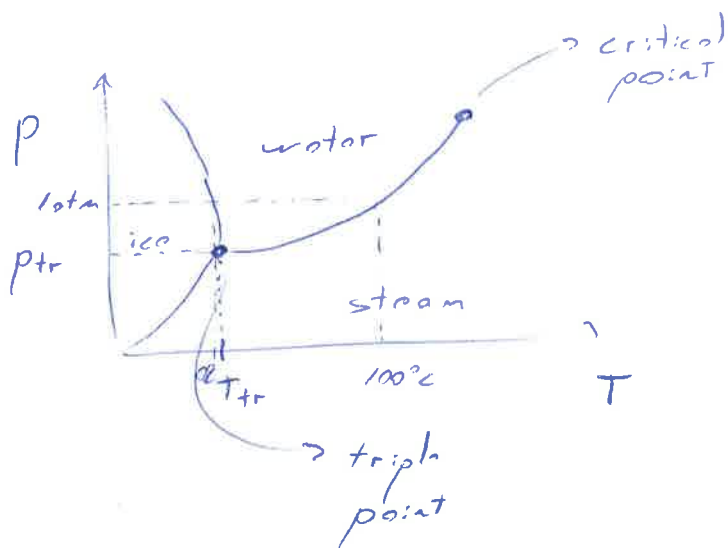 critical
point
P
water
1atm
ice
Ptr
steam
Ttr
100°C
T
triple
point